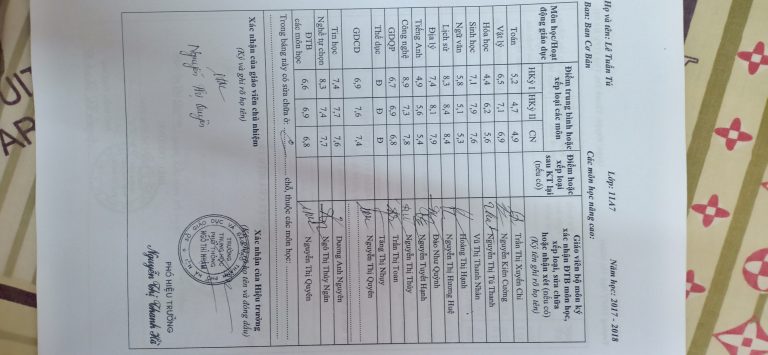 Họ và tên: Lê Tuấn Tú Lớp: 11A7 Năm học: 2017 - 2018
Ban: Ban Cơ Bản Các môn học nâng cao:
Môn học/Hoạt động giáo dục
Điểm trung bình hoặc xếp loại các môn
HKỳ I HKỳ II CN
Điểm hoặc xếp loại sau KT lại (nếu có)
Giáo viên bộ môn ký xác nhận ĐTB môn học, xếp loại, sửa chữa (nếu có) hoặc nhận xét
(Ký tên ghi rõ họ tên)
Toán 5,2 4,7 4,9 Trần Thị Xuyến Chi
Vật lý 6,5 7,1 6,9 Nguyễn Kiên Cường
Hóa học 4,4 6,2 5,6 Nguyễn Thị Tú Thanh
Sinh học 7,1 7,9 7,6 Vũ Thị Thanh Nhàn
Ngữ văn 5,8 5,1 5,3 Hoàng Thị Hạnh
Lịch sử 8,3 8,4 8,4 Nguyễn Thị Hương Huệ
Địa lý 7,4 8,1 7,9 Đào Như Quỳnh
Tiếng Anh 4,9 5,6 5,4 Nguyễn Tuyết Hạnh
Công nghệ 8,9 7,3 7,8 Nguyễn Thị Thủy
GDQP 6,7 6,9 6,8 Trần Thị Toan
Thể dục Đ Đ Đ Tăng Thị Nhuy
GDCD 6,9 7,6 7,4 Nguyễn Thị Quyên
Tin học 7,4 7,7 7,6 Dương Anh Nguyên
Nghề tự chọn 8,3 7,4 7,7 Ngô Thị Thúy Ngân
ĐTB các môn học 6,6 6,9 6,8 Nguyễn Thị Quyên
Trong bảng này có sửa chữa ở: chỗ, thuộc các môn học:
Xác nhận của giáo viên chủ nhiệm Xác nhận của Hiệu trưởng
(Ký và ghi rõ họ tên)
Nguyễn Thị Quyên
TRƯỜNG
TRUNG HỌC
PHỔ THÔNG
NGÔ THÌ NHẬM
PHÓ HIỆU TRƯỞNG
Nguyễn Thị Thanh Hà